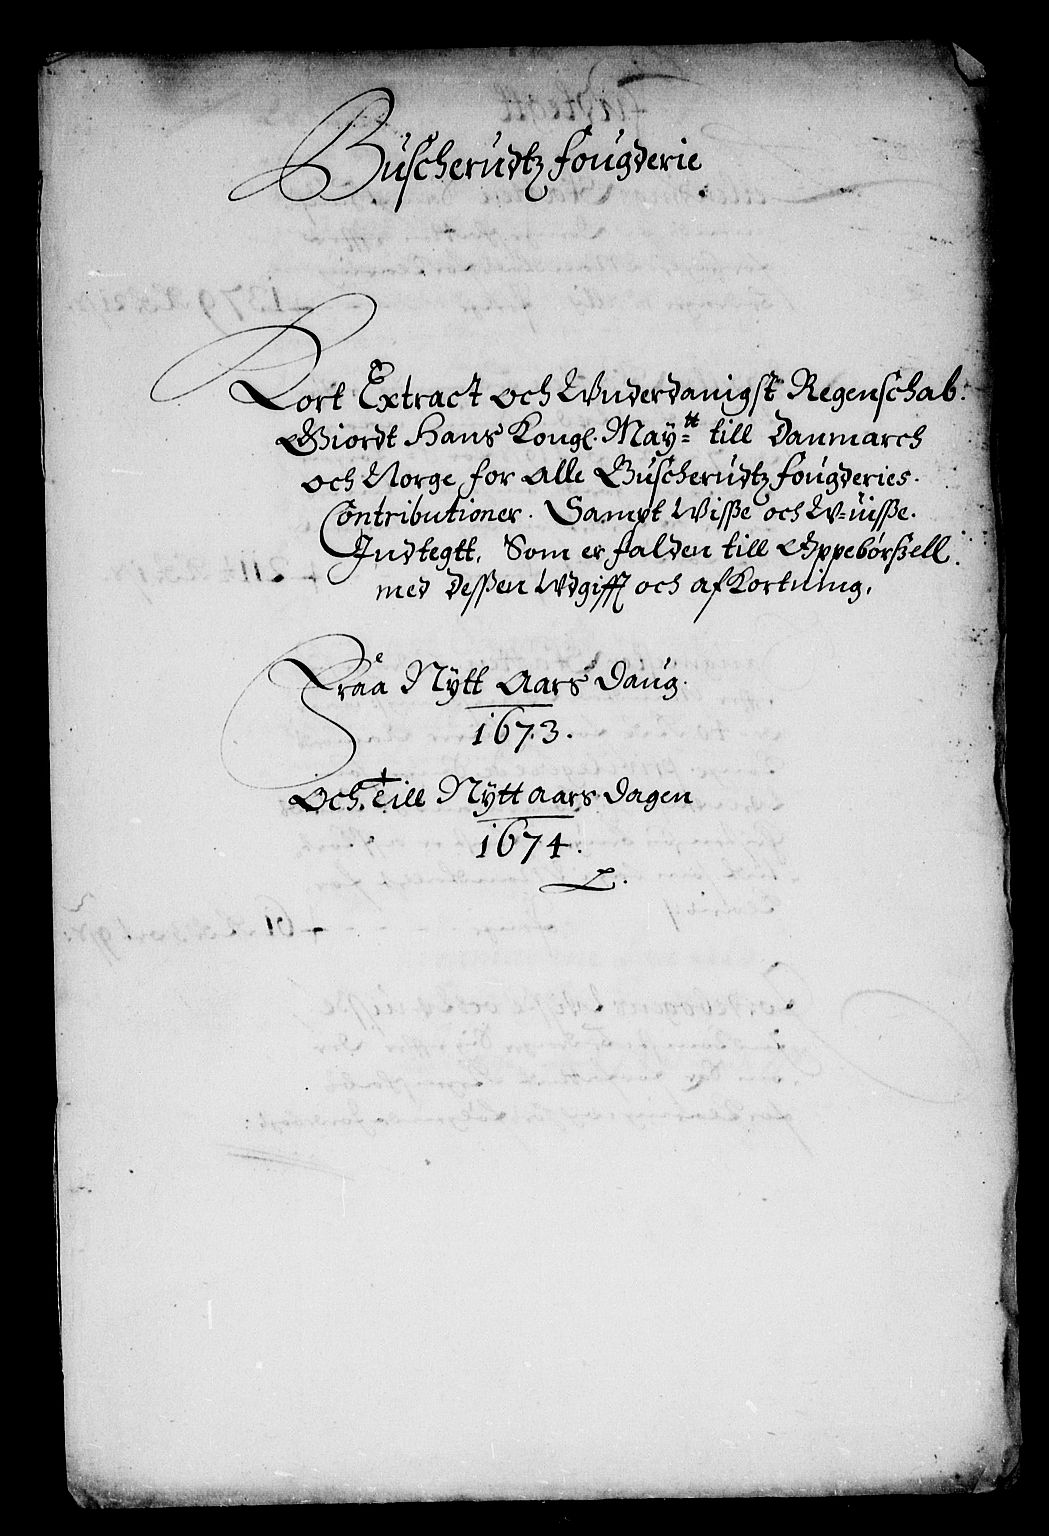 Buscherudtz fougderie
Kort Extract och Wnderdanigst Regenschab:
Giordt Hans Kongl. Maytt: till Danmarch
och Norge for alle Buscherudtz fougderies.
Contributioner. Sampt Wisse och W-uisse.
Indtegtt, Som er falden till Oppebørszell.
med dessen Wdgifft och afkortning,
Fraa Nÿtt Aars Daug.
1673.
Och till Nÿtt aars dagen
1674.